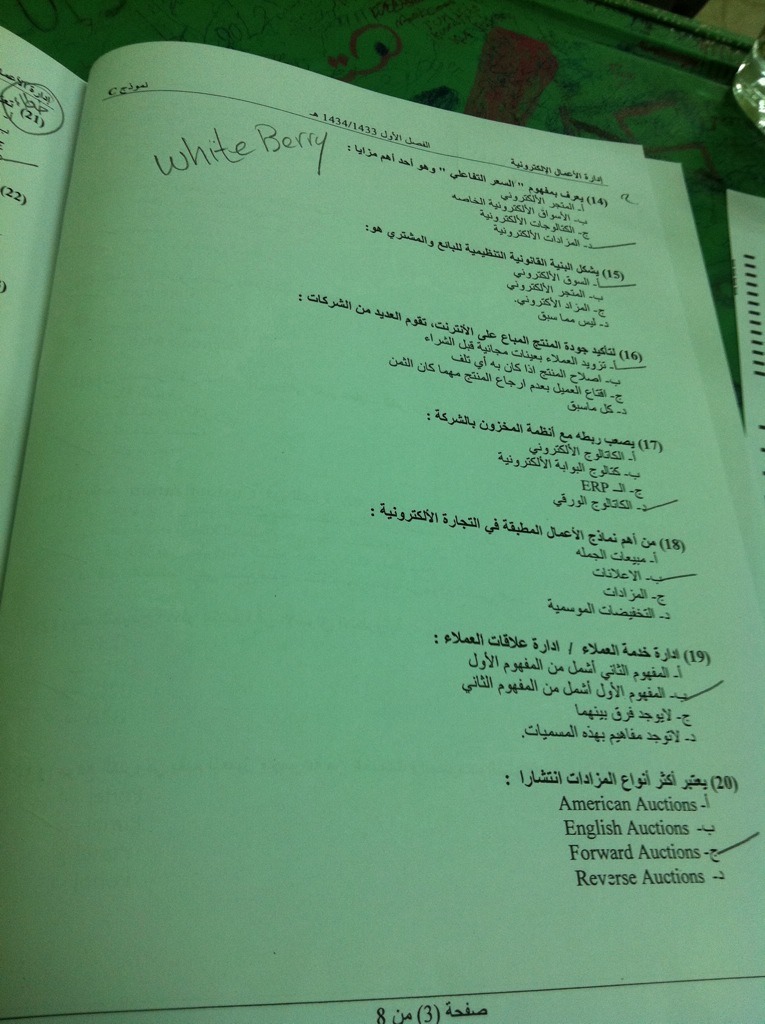 إدارة الأعمال الإلكترونية
الفصل الأول 1434/1433 هـ
نموذج C
White Berry
(14) يعرف بمفهوم " السعر التفاعلي " وهو أحد أهم مزايا :
أ- المتجر الألكتروني
ب- الأسواق الألكترونية الخاصه
ج- الكتالوجات الألكترونية
د- المزادات الألكترونية
(15) يشكل البنية القانونية التنظيمية للبائع والمشتري هو:
أ- السوق الألكتروني
ب- المتجر الألكتروني
ج- المزاد الأكتروني.
د- ليس مما سبق
(16) لتأكيد جودة المنتج المباع على الأنترنت، تقوم العديد من الشركات :
أ- تزويد العملاء بعينات مجانية قبل الشراء
ب- اصلاح المنتج اذا كان به أي تلف
ج- اقناع العميل بعدم ارجاع المنتج مهما كان الثمن
د- كل ماسبق
(17) يصعب ربطه مع أنظمة المخزون بالشركة :
أ- الكتالوج الألكتروني
ب- كتالوج البوابة الألكترونية
ج- الـ ERP
د- الكتالوج الورقي
(18) من أهم نماذج الأعمال المطبقة في التجارة الألكترونية :
أ- مبيعات الجمله
ب- الاعلانات
ج- المزادات
د- التخفيضات الموسمية
(19) ادارة خدمة العملاء / ادارة علاقات العملاء :
أ- المفهوم الثاني أشمل من المفهوم الأول
ب- المفهوم الأول أشمل من المفهوم الثاني
ج- لايوجد فرق بينهما
د- لاتوجد مفاهيم بهذه المسميات.
(20) يعتبر أكثر أنواع المزادات انتشارا :
أ- American Auctions
ب- English Auctions
ج- Forward Auctions
د- Reverse Auctions
صفحة (3) من 8
(21)
(22)